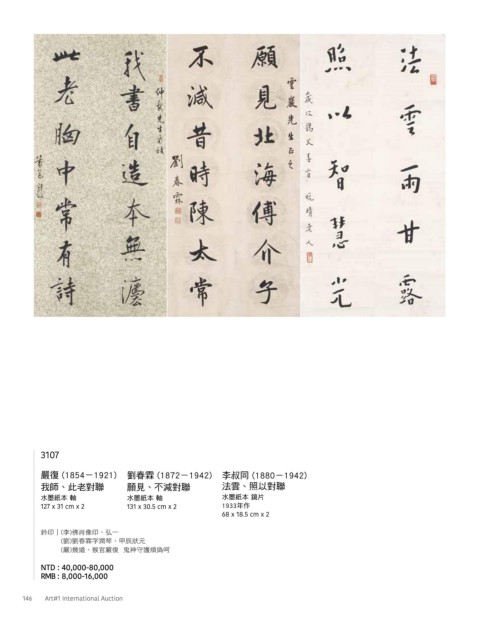 法雲雨甘露
照以智慧光
歲次癸
願見北海傅介子
雲巖先生正之
不減昔時陳太常
劉春霖
我書自造本無法
仲武先生
此老胸中常有詩
3107
嚴復 (1854－1921)
我師、此老對聯
水墨紙本 軸
127 x 31 cm x 2
劉春霖 (1872－1942)
願見、不減對聯
水墨紙本 軸
131 x 30.5 cm x 2
李叔同 (1880－1942)
法雲、照以對聯
水墨紙本 鏡片
1933年作
68 x 18.5 cm x 2
鈐印｜(李)佛肖像印、弘一
(劉)劉春霖字潤琴、甲辰狀元
(嚴)幾道、猴官嚴復 鬼神守護煩撝呵
NTD : 40,000-80,000
RMB : 8,000-16,000
146 Art#1 International Auction